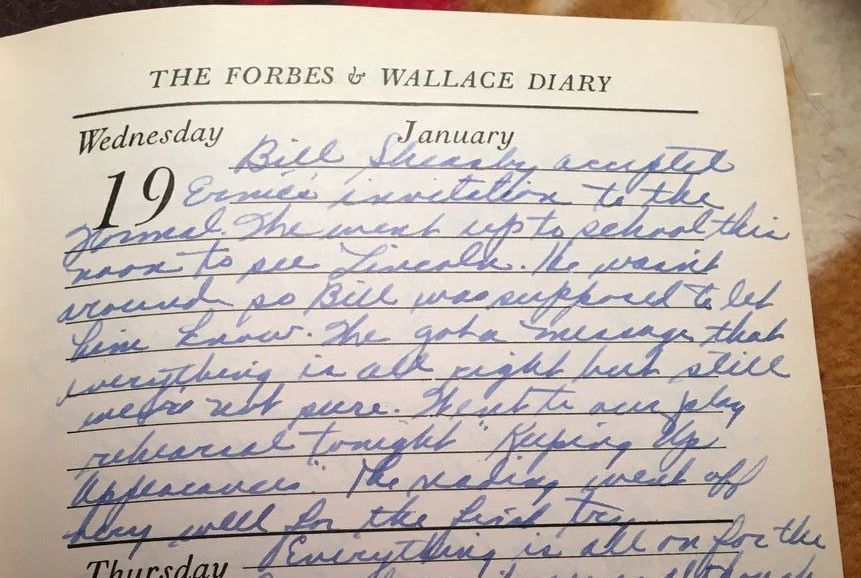 THE FORBES & WALLACE DIARY
Wednesday January
Bill accepted
19 Ernie's invitation to the
Formal. She went up to school this
noon to see Lincoln. He wasn't
around so Bill was supposed to let
him know. She got a message that
everything is all right but still
we're not sure. Went to our play
rehearsal tonight "Keeping Up
Appearances". The reading went off
very well for the first try.
Thursday Everything is all on for the